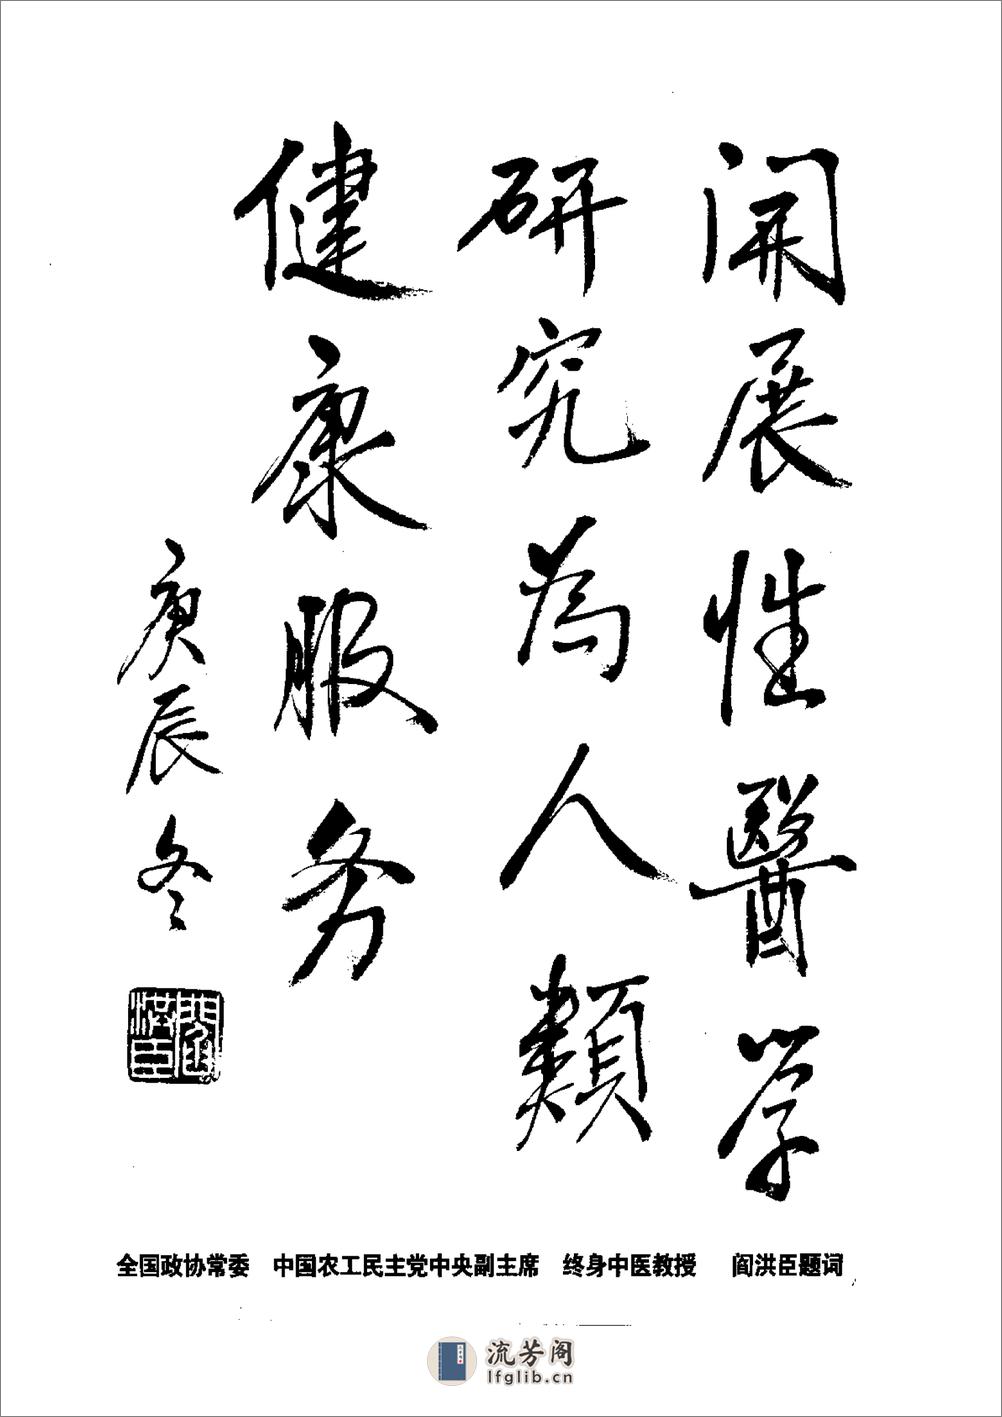 開展性醫学
研究為人類
健康服务
庚辰冬
閻洪臣
全国政协常委 中国农工民主党中央副主席 终身中医教授 阎洪臣题词
流芳阁
lfglib.cn